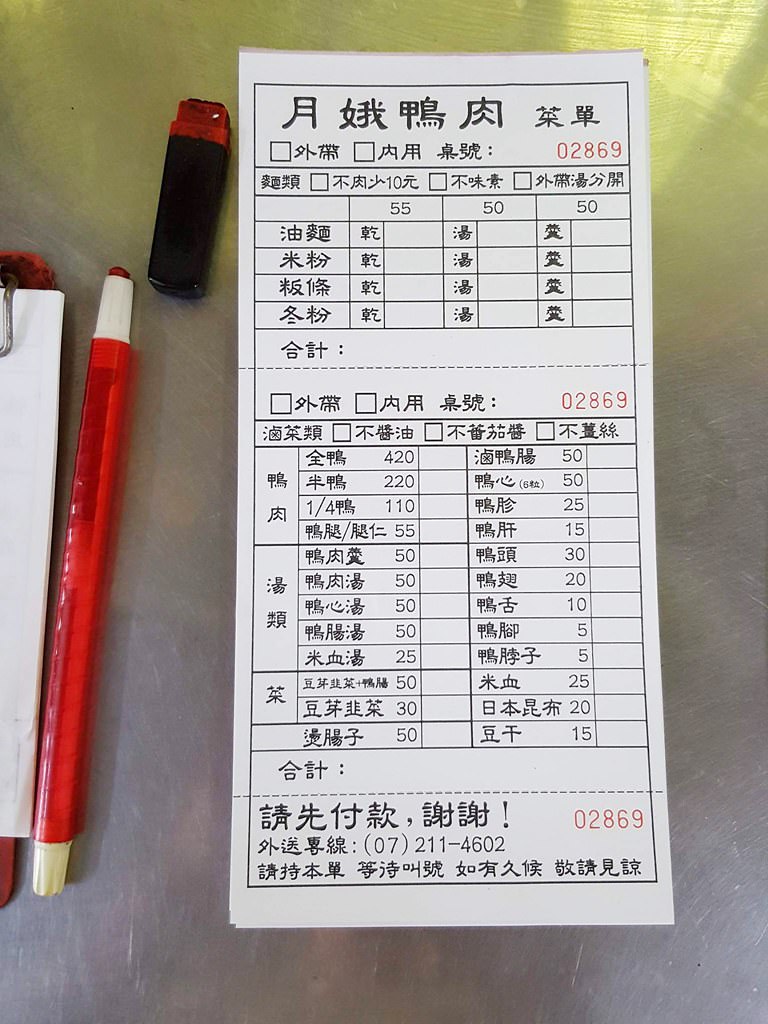 月娥鴨肉 菜單
□外帶 □內用 桌號： 02869
麵類 □不肉少10元 □不味素 □外帶湯分開
55 50 50
油麵 乾 湯 羹
米粉 乾 湯 羹
粄條 乾 湯 羹
冬粉 乾 湯 羹
合計：
□外帶 □內用 桌號： 02869
滷菜類 □不醬油 □不蕃茄醬 □不薑絲
鴨肉
全鴨 420 滷鴨腸 50
半鴨 220 鴨心(6粒) 50
1/4鴨 110 鴨胗 25
鴨腿/腿仁 55 鴨肝 15
湯類
鴨肉羹 50 鴨頭 30
鴨肉湯 50 鴨翅 20
鴨心湯 50 鴨舌 10
鴨腸湯 50 鴨腳 5
米血湯 25 鴨脖子 5
菜
豆芽韭菜+鴨腸 50 米血 25
豆芽韭菜 30 日本昆布 20
燙腸子 50 豆干 15
合計：
請先付款，謝謝！ 02869
外送專線：(07)211-4602
請持本單 等待叫號 如有久候 敬請見諒